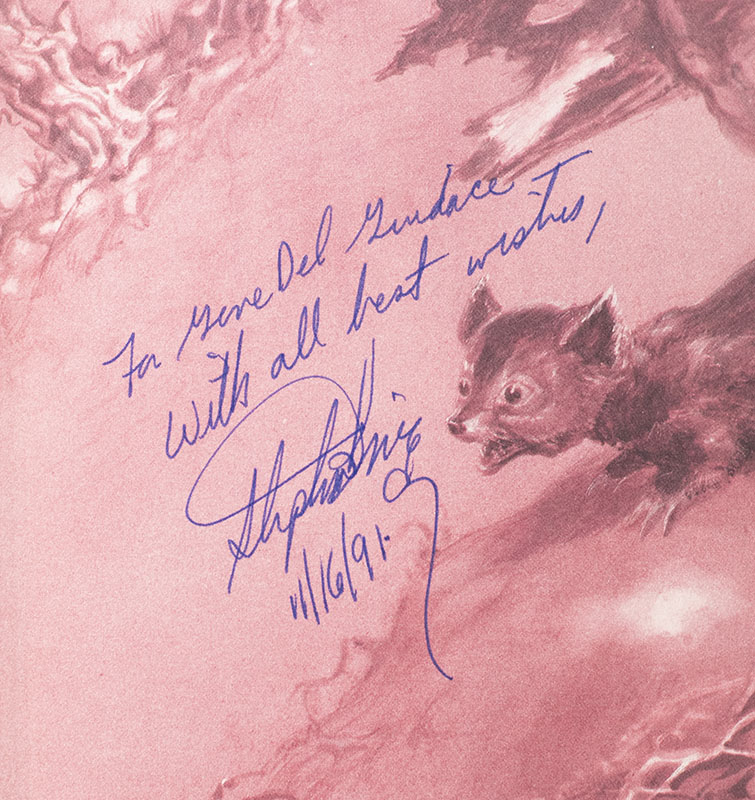 For Gene Del
With all best wishes,
Stephen King
11/16/91